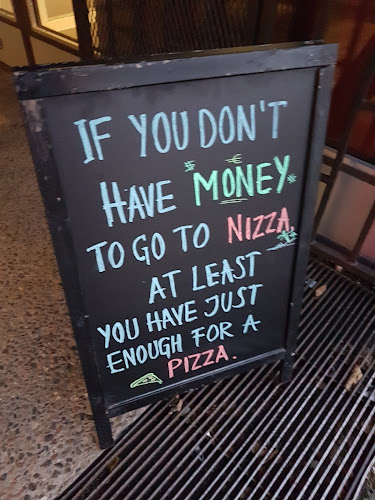 IF YOU DON'T
HAVE MONEY
TO GO TO NIZZA
AT LEAST
YOU HAVE JUST
ENOUGH FOR A
PIZZA.